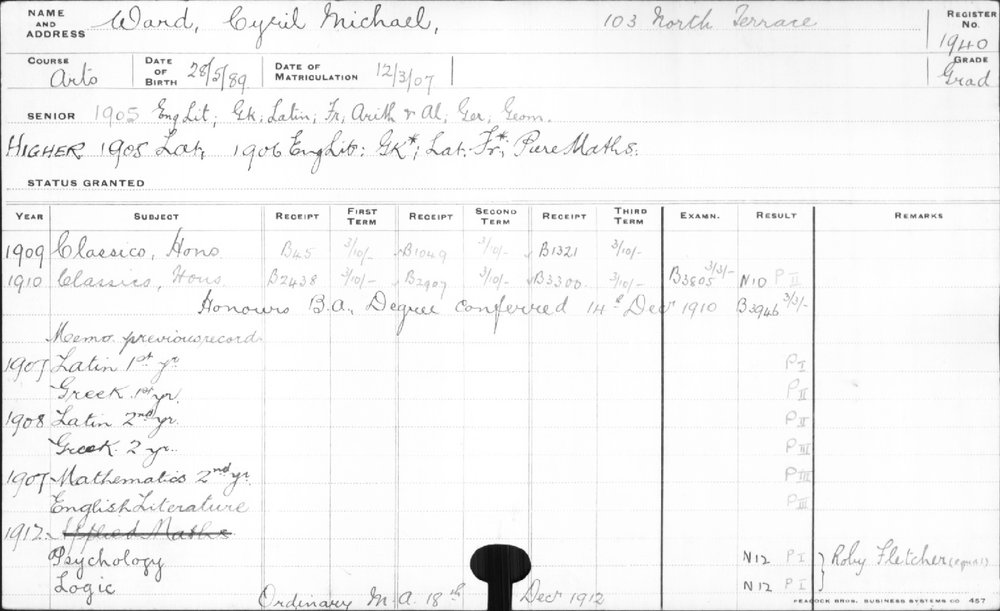 NAME AND ADDRESS Ward, Cyril Michael, 103 North Terrace REGISTER No. 1940
COURSE Arts DATE OF BIRTH 28/5/89 DATE OF MATRICULATION 12/3/07 GRADE Grad
SENIOR 1905 Eng Lit; Gk; Latin; Fr; Arith & Al; Ger; Geom.
HIGHER 1905 Lat, 1906 Eng Lit: GK*; Lat. Fr*; Pure Maths.
STATUS GRANTED
YEAR SUBJECT RECEIPT FIRST TERM RECEIPT SECOND TERM RECEIPT THIRD TERM EXAMN. RESULT REMARKS
1909 Classics, Hons B45 3/10/- B1049 3/10/- B1321 3/10/-
1910 Classics, Hons B2438 3/10/- B2907 3/10/- B3300 3/10/- B3805 3/3/- N10 P II
Honours B.A. Degree conferred 14th Decr 1910 B3946 3/3/-
Memo. previous record
1907 Latin 1st yr P I
Greek 1st yr. P II
1908 Latin 2nd yr. P II
Greek 2 yr. P III
1907 Mathematics 2nd yr. P III
English Literature P III
1912 Applied Maths
Psychology N12 P I } Roby Fletcher (equal)
Logic N12 P I
Ordinary M.A. 18th Decr 1912
PEACOCK BROS. BUSINESS SYSTEMS CO 457